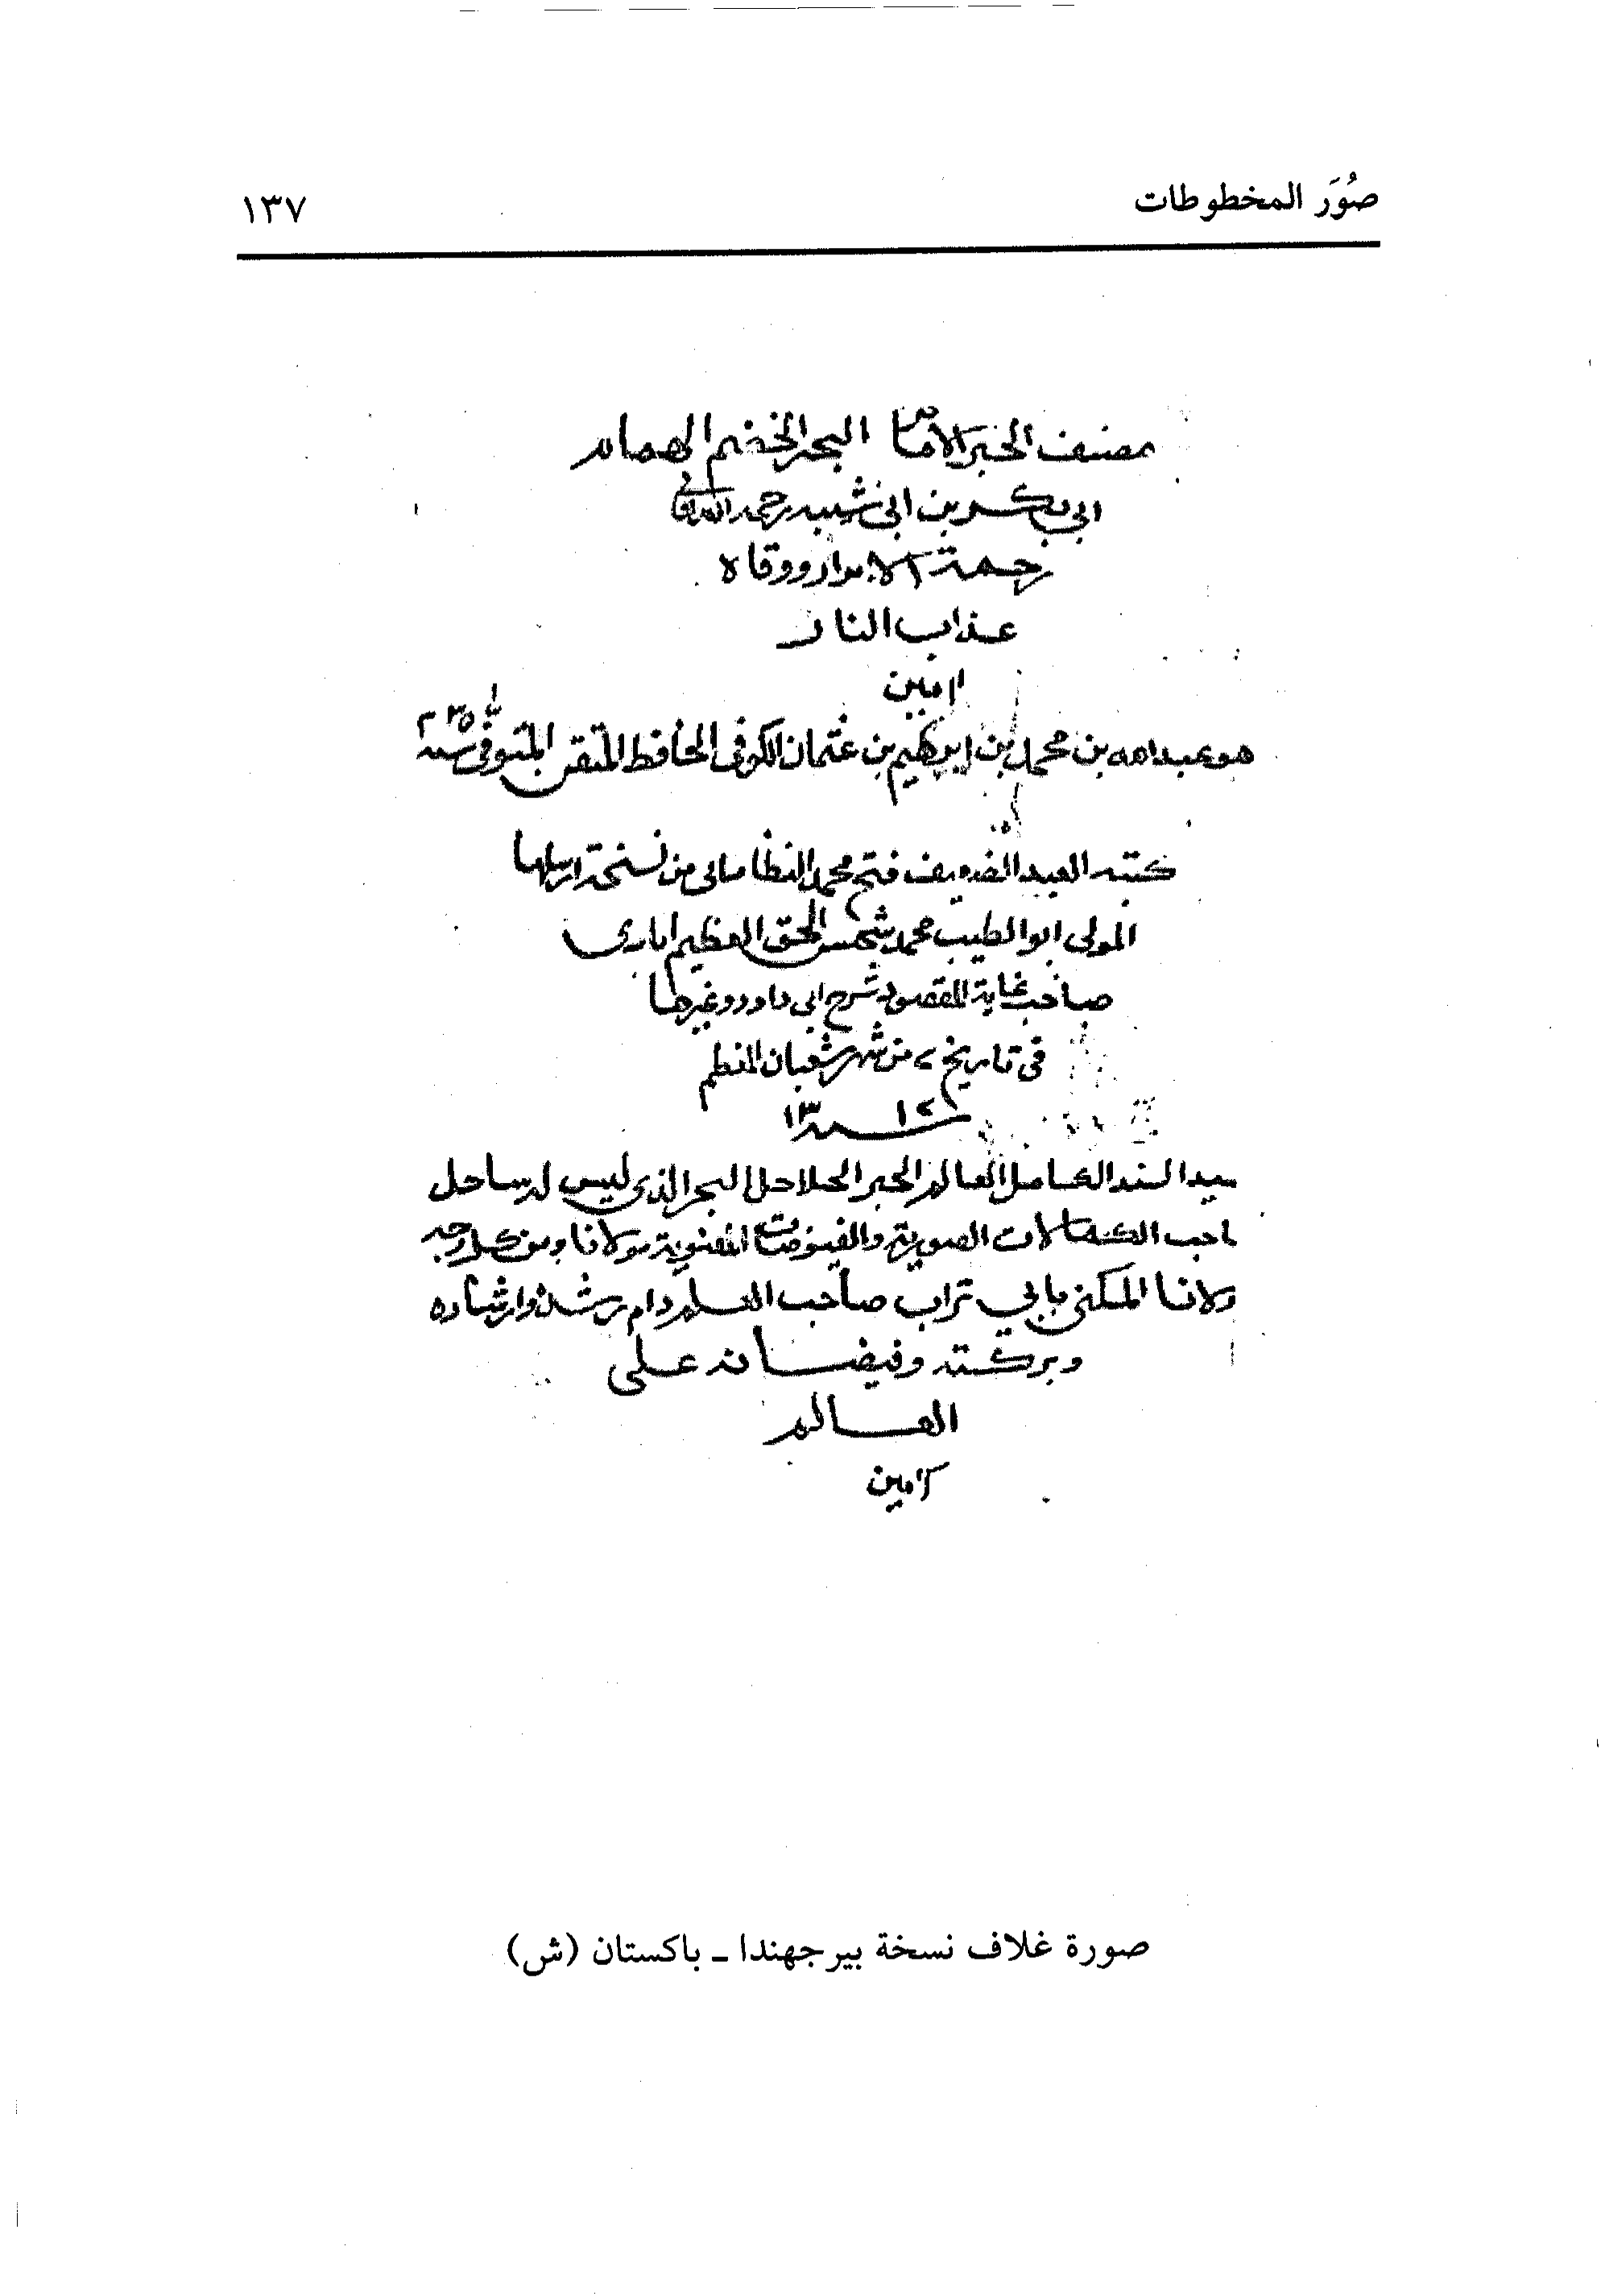 صُوَر المخطوطات ١٣٧
مصنف الحبر الامام البحر الخضم الهمام
ابي بكر بن ابي شيبه رحمه الله تعالى
رحمة الابرار ووقاه
عذاب النار
امين
هو عبد الله بن محمد بن ابراهيم بن عثمان الكوفي الحافظ المتقن المتوفى سنه ٢٣٥
كتبه العبد الضعيف فتح محمد النظاماني من نسخة ارسلها
المولى ابو الطيب محمد شمس الحق العظيم ابادى
صاحب غاية المقصود شرح ابي داود وغيرها
في تاريخ من شهر شعبان المعظم
سنه
سيد السند الكامل العالم الحبر الحلاحل البحر الذي ليس له ساحل
احب الكمالات الصورية والفيوضات المعنوية مولانا ومن كل وجه
ولانا المكنى بابي تراب صاحب العلم دام رشده وارشاده
وبركته وفيضانه على
العالم
آمين
صورة غلاف نسخة بيرجهندا ـ باكستان (ش)